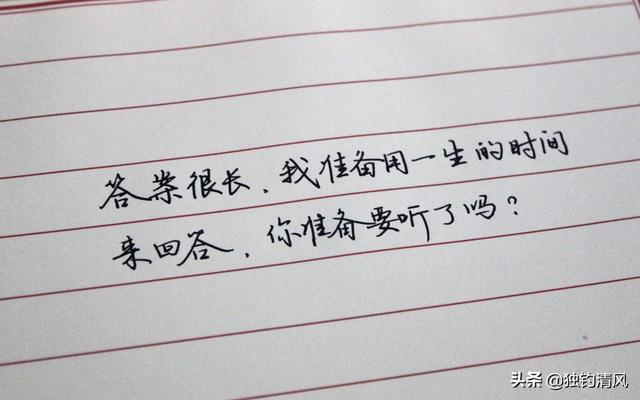 答案很长,我准备用一生的时间
来回答,你准备要听了吗?
头条 @独钓清风